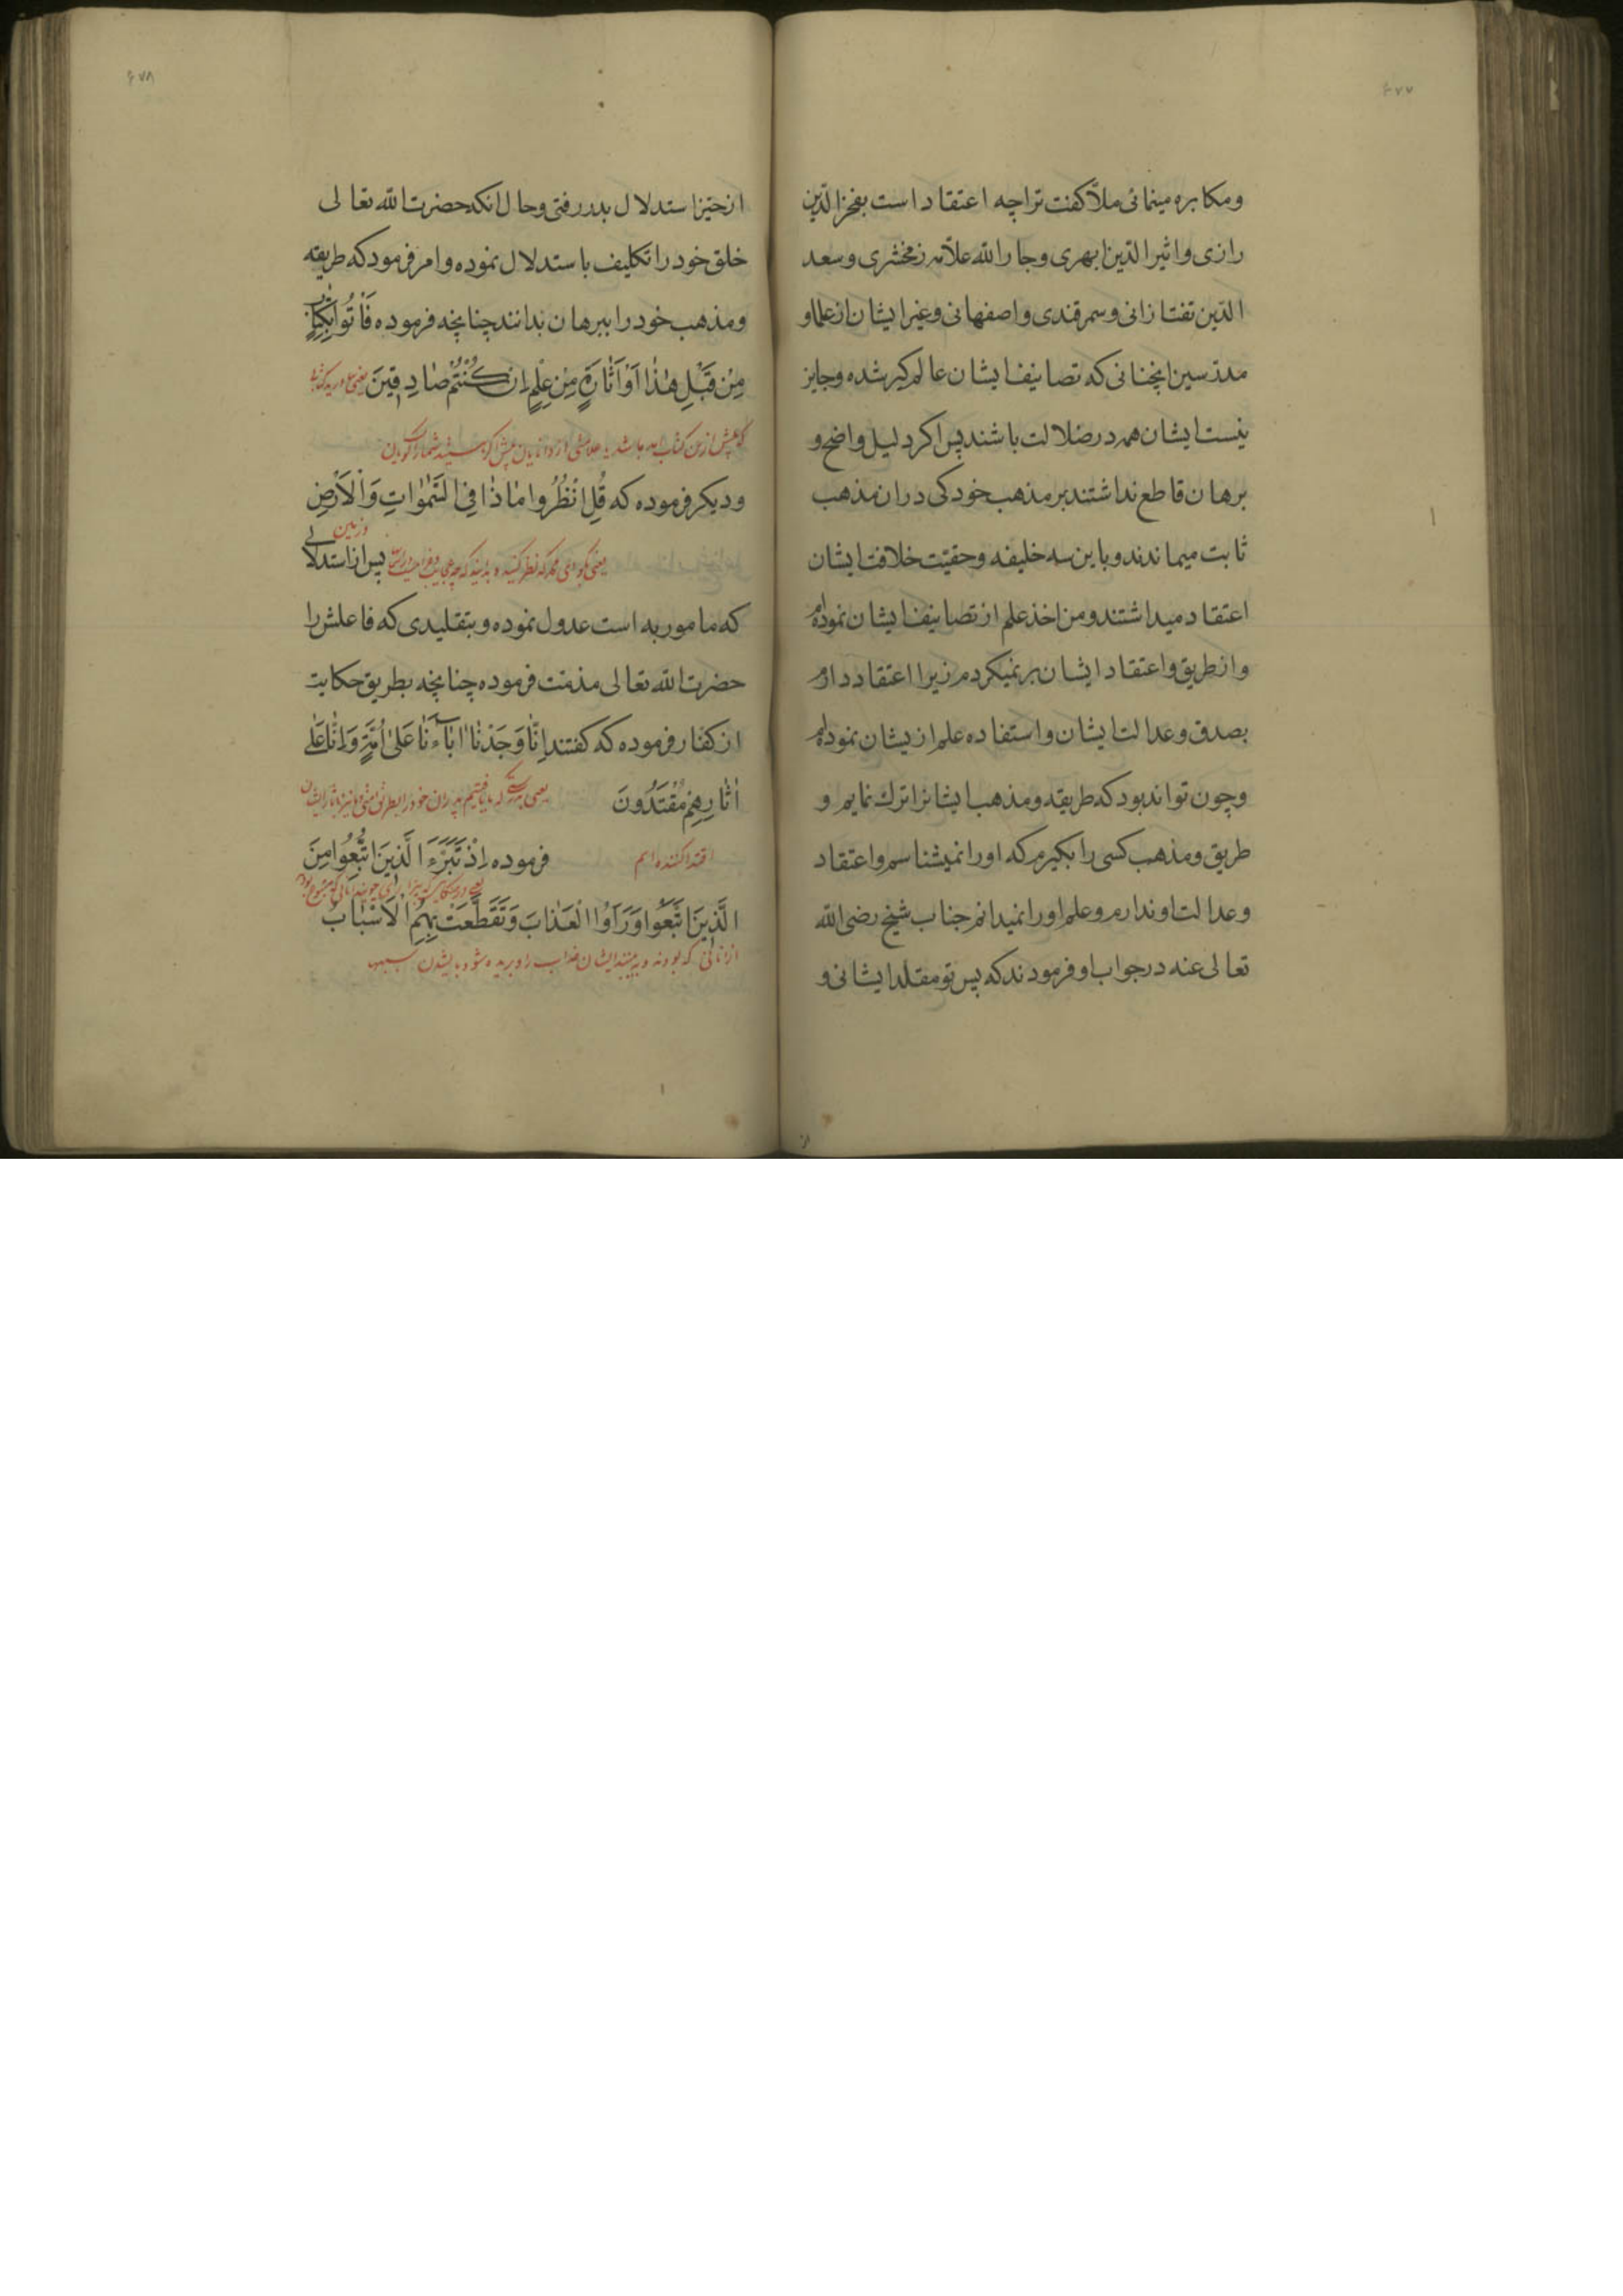 ۶۷۷
ومکابره مینمائی ملّا کفت تراچه اعتقاد است بفخر الدّین
رازی واثیر الدّین ابهری وجار الله علاّمه زمخشری وسعد
الدّین تفتازانی وسمرقندی واصفهانی وغیر ایشان از علما و
مدرّسین انچنانی که تصانیف ایشان عالم کیر شده وجایز
نیست ایشان همه در ضلالت باشند پس اکر دلیل واضح و
برهان قاطع نداشتند بر مذهب خود کی در ان مذهب
ثابت میماندند وباین سه خلیفه وحقیّت خلافت ایشان
اعتقاد میداشتند ومن اخذ علم از تصانیف ایشان نموده‌ام
واز طریق واعتقاد ایشان بر نمیکردم زیرا اعتقاد دارم
بصدق وعدالت ایشان واستفاده علم از یشان نموده‌ام
وچون تواند بود که طریقه ومذهب ایشانرا ترك نمایم و
طریق ومذهب کسی را بکیرم که اورا نمیشناسم واعتقاد
وعدالت او ندارم وعلم اورا نمیدانم جناب شیخ رضی الله
تعالی عنه در جواب او فرمودند که پس تو مقلّد ایشانی و
۶۷۸
از حیّز استدلال بدر رفتی وحال انکه حضرت الله تعالی
خلق خود را تکلیف باستدلال نموده وامر فرمود که طریقه
ومذهب خود را ببرهان بدانند چنانچه فرموده فَأْتُوا بِكِتَابٍ
مِنْ قَبْلِ هٰذَا أَوْ أَثَارَةٍ مِنْ عِلْمٍ إِنْ كُنْتُمْ صَادِقِينَ یعنی
که پیش از این کتاب یا علامتی از دانایان پیش اگر هستید شما راست گویان
ودیکر فرموده که قُلِ انْظُرُوا مَاذَا فِي السَّمٰوَاتِ وَالْأَرْضِ
یعنی بگو ای محمد که نظر کنید و به بینید که چه وزمین پس از استدلالی
که مامور به است عدول نموده وبتقلیدی که فاعلش را
حضرت الله تعالی مذمّت فرموده چنانچه بطریق حکایت
از کفار فرموده که کفتند إِنَّا وَجَدْنَا اٰبَاءَنَا عَلَىٰ أُمَّةٍ وَإِنَّا عَلَىٰ
اٰثَارِهِمْ مُقْتَدُونَ یعنی بدرستی که ما یافتیم پدران خود را بطریقی
اقتدا کننده ایم فرموده إِذْ تَبَرَّءَ الَّذِينَ اتُّبِعُوا مِنَ
الَّذِينَ اتَّبَعُوا وَرَأَوُا الْعَذَابَ وَتَقَطَّعَتْ بِهِمُ الْأَسْبَابُ
از انانی که بودند و به بینند ایشان عذاب را و بریده شود